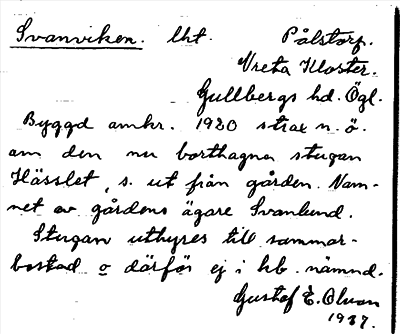 Svanviken. lht. Pålstorp.
Vreta Kloster.
Gullbergs hd. Ögl.
Byggd omkr. 1920 strax n.ö.
om den nu borttagna stugan
Hässlet, s. ut från gården. Nam-
net av gårdens ägare Svanlund.
Stugan uthyres till sommar-
bostad o därför ej i hb. nämnd.
Gustaf E. Olsson
1937.